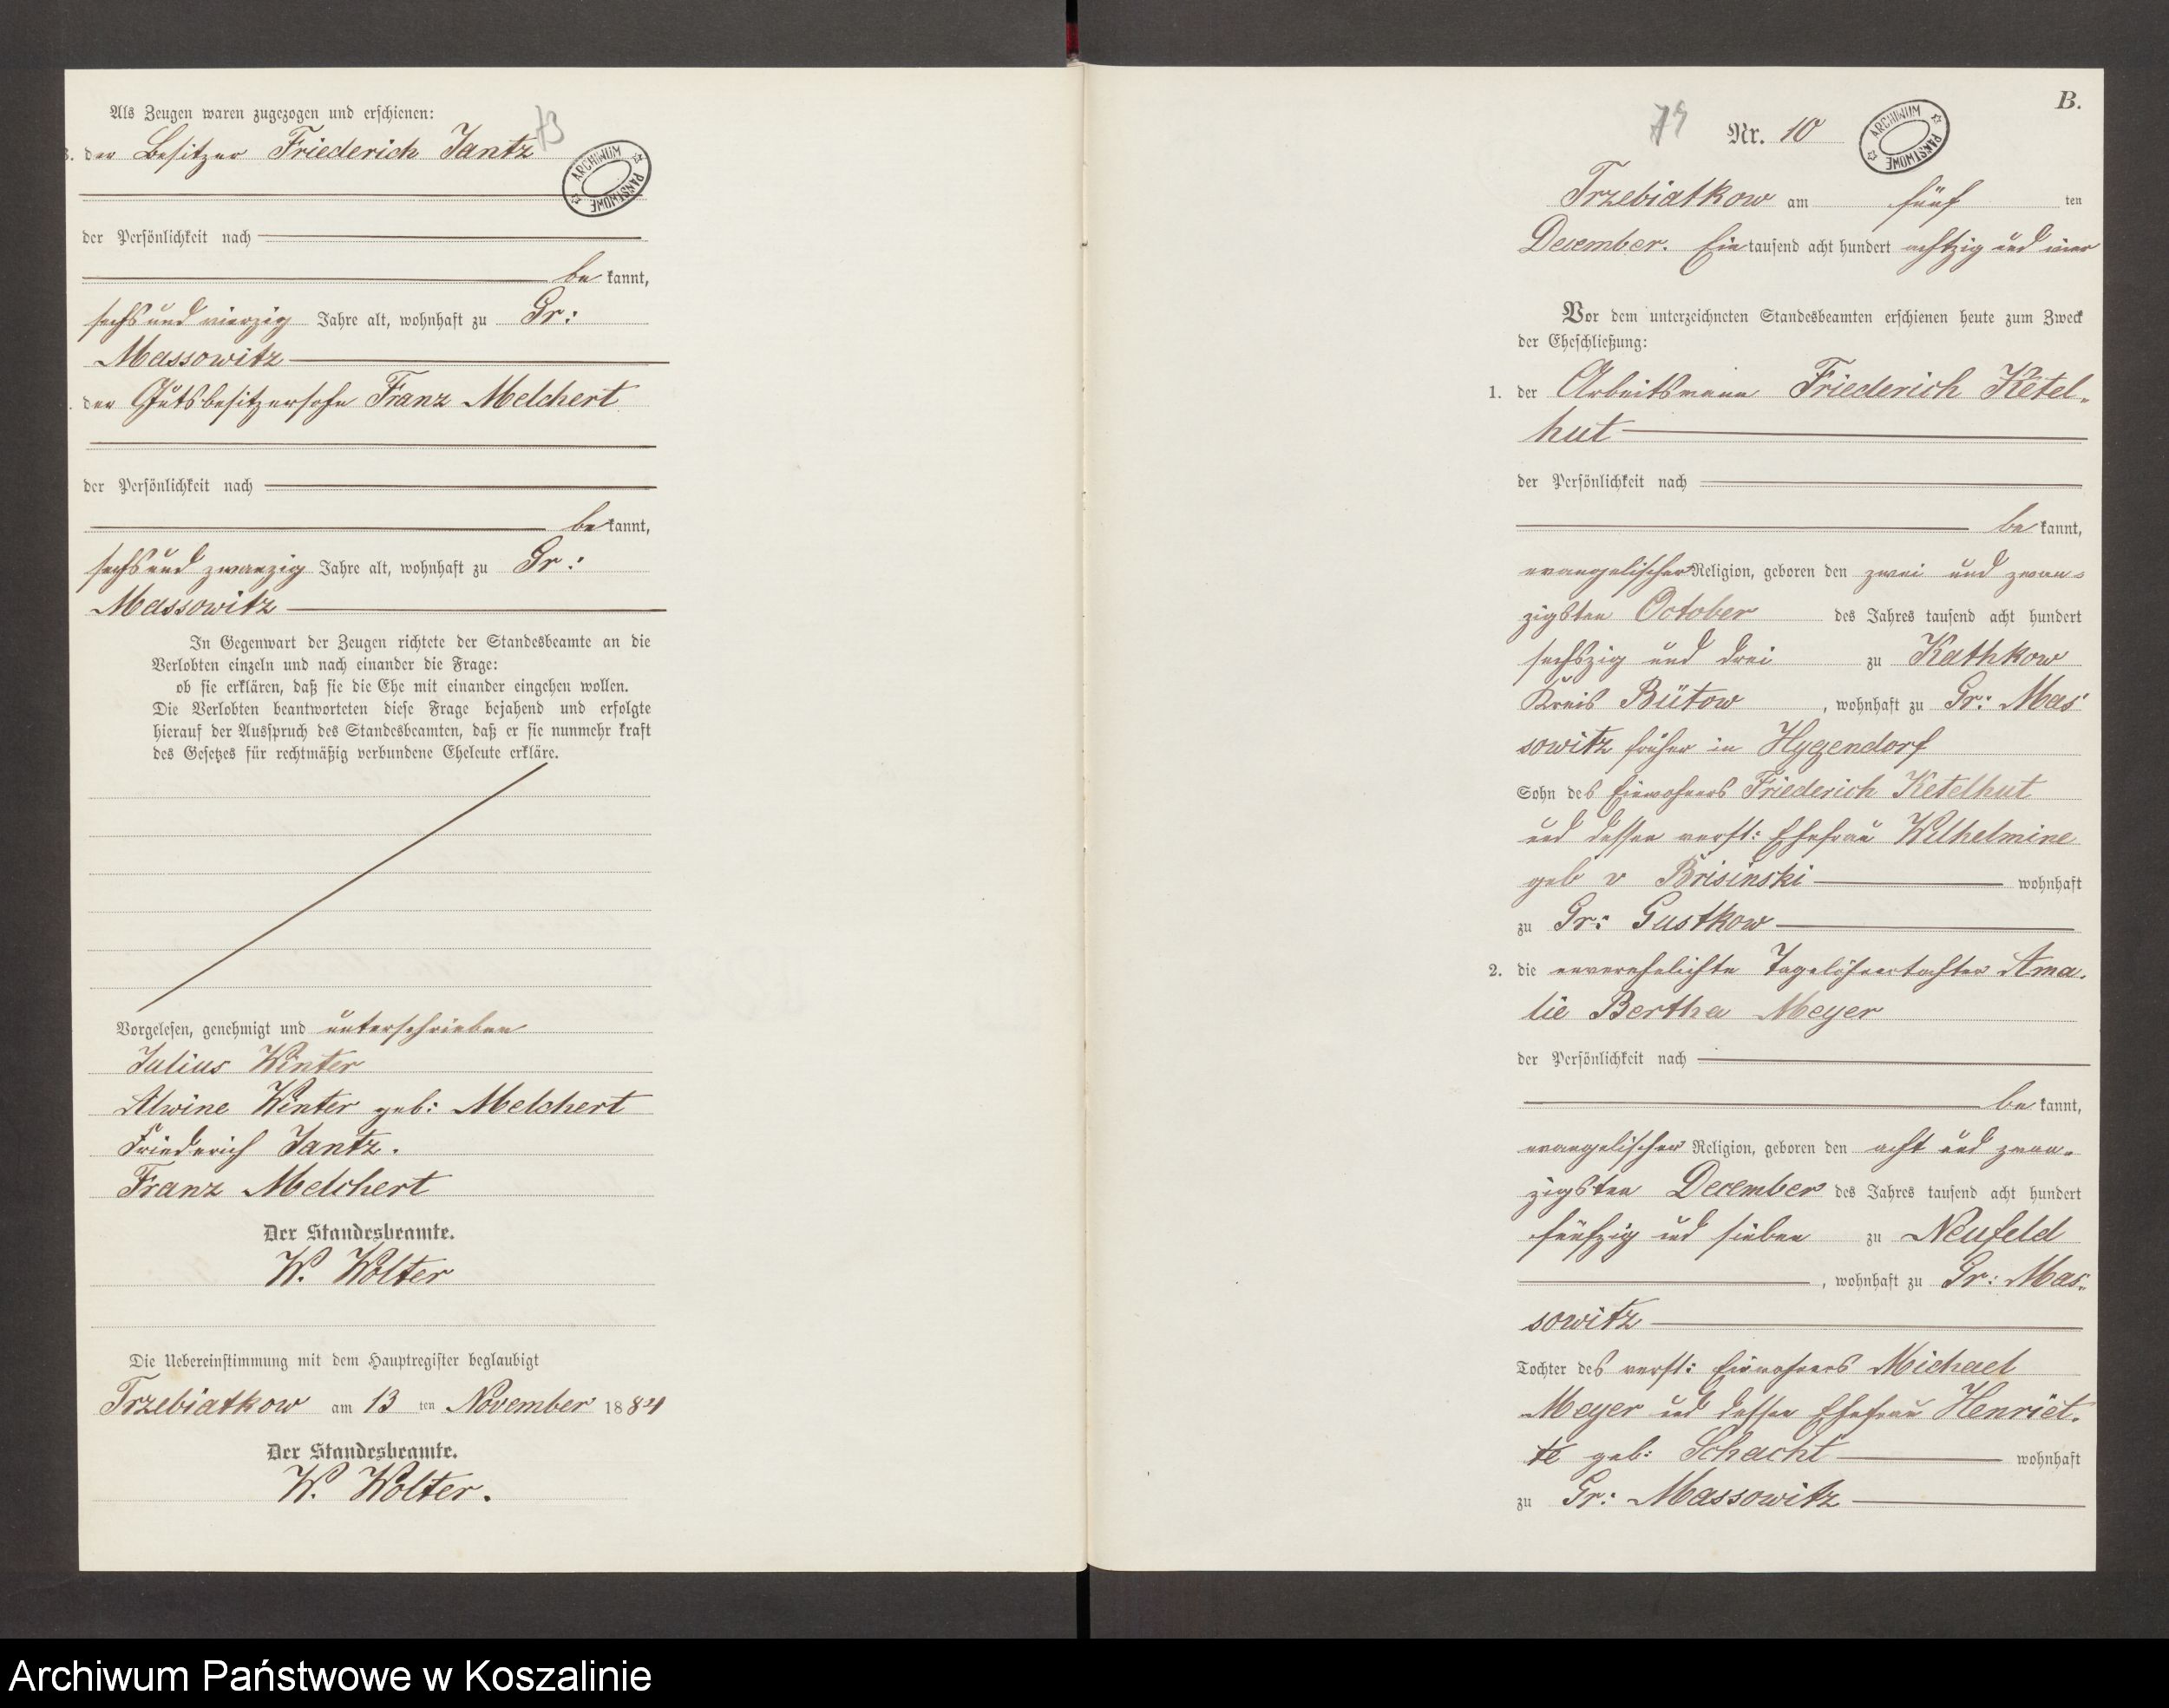 Als Zeugen waren zugezogen und erschienen:
73
3. der Besitzer Friederich Jantz
ARCHIWUM PAŃSTWOWE
der Persönlichkeit nach
be kannt,
sechs und vierzig Jahre alt, wohnhaft zu Gr:
Massowitz
. der Gutsbesitzersohn Franz Melchert
der Persönlichkeit nach
be kannt,
sechs und zwanzig Jahre alt, wohnhaft zu Gr:
Massowitz
In Gegenwart der Zeugen richtete der Standesbeamte an die
Verlobten einzeln und nach einander die Frage:
ob sie erklären, daß sie die Ehe mit einander eingehen wollen.
Die Verlobten beantworteten diese Frage bejahend und erfolgte
hierauf der Ausspruch des Standesbeamten, daß er sie nunmehr kraft
des Gesetzes für rechtmäßig verbundene Eheleute erkläre.
Vorgelesen, genehmigt und unterschrieben
Julius Winter
Alwine Winter geb: Melchert
Friederich Jantz.
Franz Melchert
Der Standesbeamte.
W. Wolter
Die Uebereinstimmung mit dem Hauptregister beglaubigt
Trzebiatkow am 13 ten November 1884
Der Standesbeamte.
W. Wolter.
B.
Nr. 10
ARCHIWUM PAŃSTWOWE
Trzebiatkow am fünf ten
December. Ein tausend acht hundert achtzig und vier
Vor dem unterzeichneten Standesbeamten erschienen heute zum Zweck
der Eheschließung:
1. der Arbeitsmann Friederich Ketel-
hut
der Persönlichkeit nach
be kannt,
evangelischer Religion, geboren den zwei und zwan-
zigsten October des Jahres tausend acht hundert
sechszig und drei zu Kathkow
Kreis Bütow, wohnhaft zu Gr: Mas
sowitz früher in Hygendorf
Sohn des Einwohners Friederich Ketelhut
und dessen verst: Ehefrau Wilhelmine
geb v Brisinski wohnhaft
zu Gr: Gustkow
2. die unverehelichte Tagelöhnertochter Ama-
lie Bertha Meyer
der Persönlichkeit nach
be kannt,
evangelischer Religion, geboren den acht und zwan-
zigsten December des Jahres tausend acht hundert
fünfzig und sieben zu Neufeld
, wohnhaft zu Gr: Mas-
sowitz
Tochter des verst: Einwohners Michael
Meyer und dessen Ehefrau Henriet-
te geb: Schacht wohnhaft
zu Gr: Massowitz
Archiwum Państwowe w Koszalinie